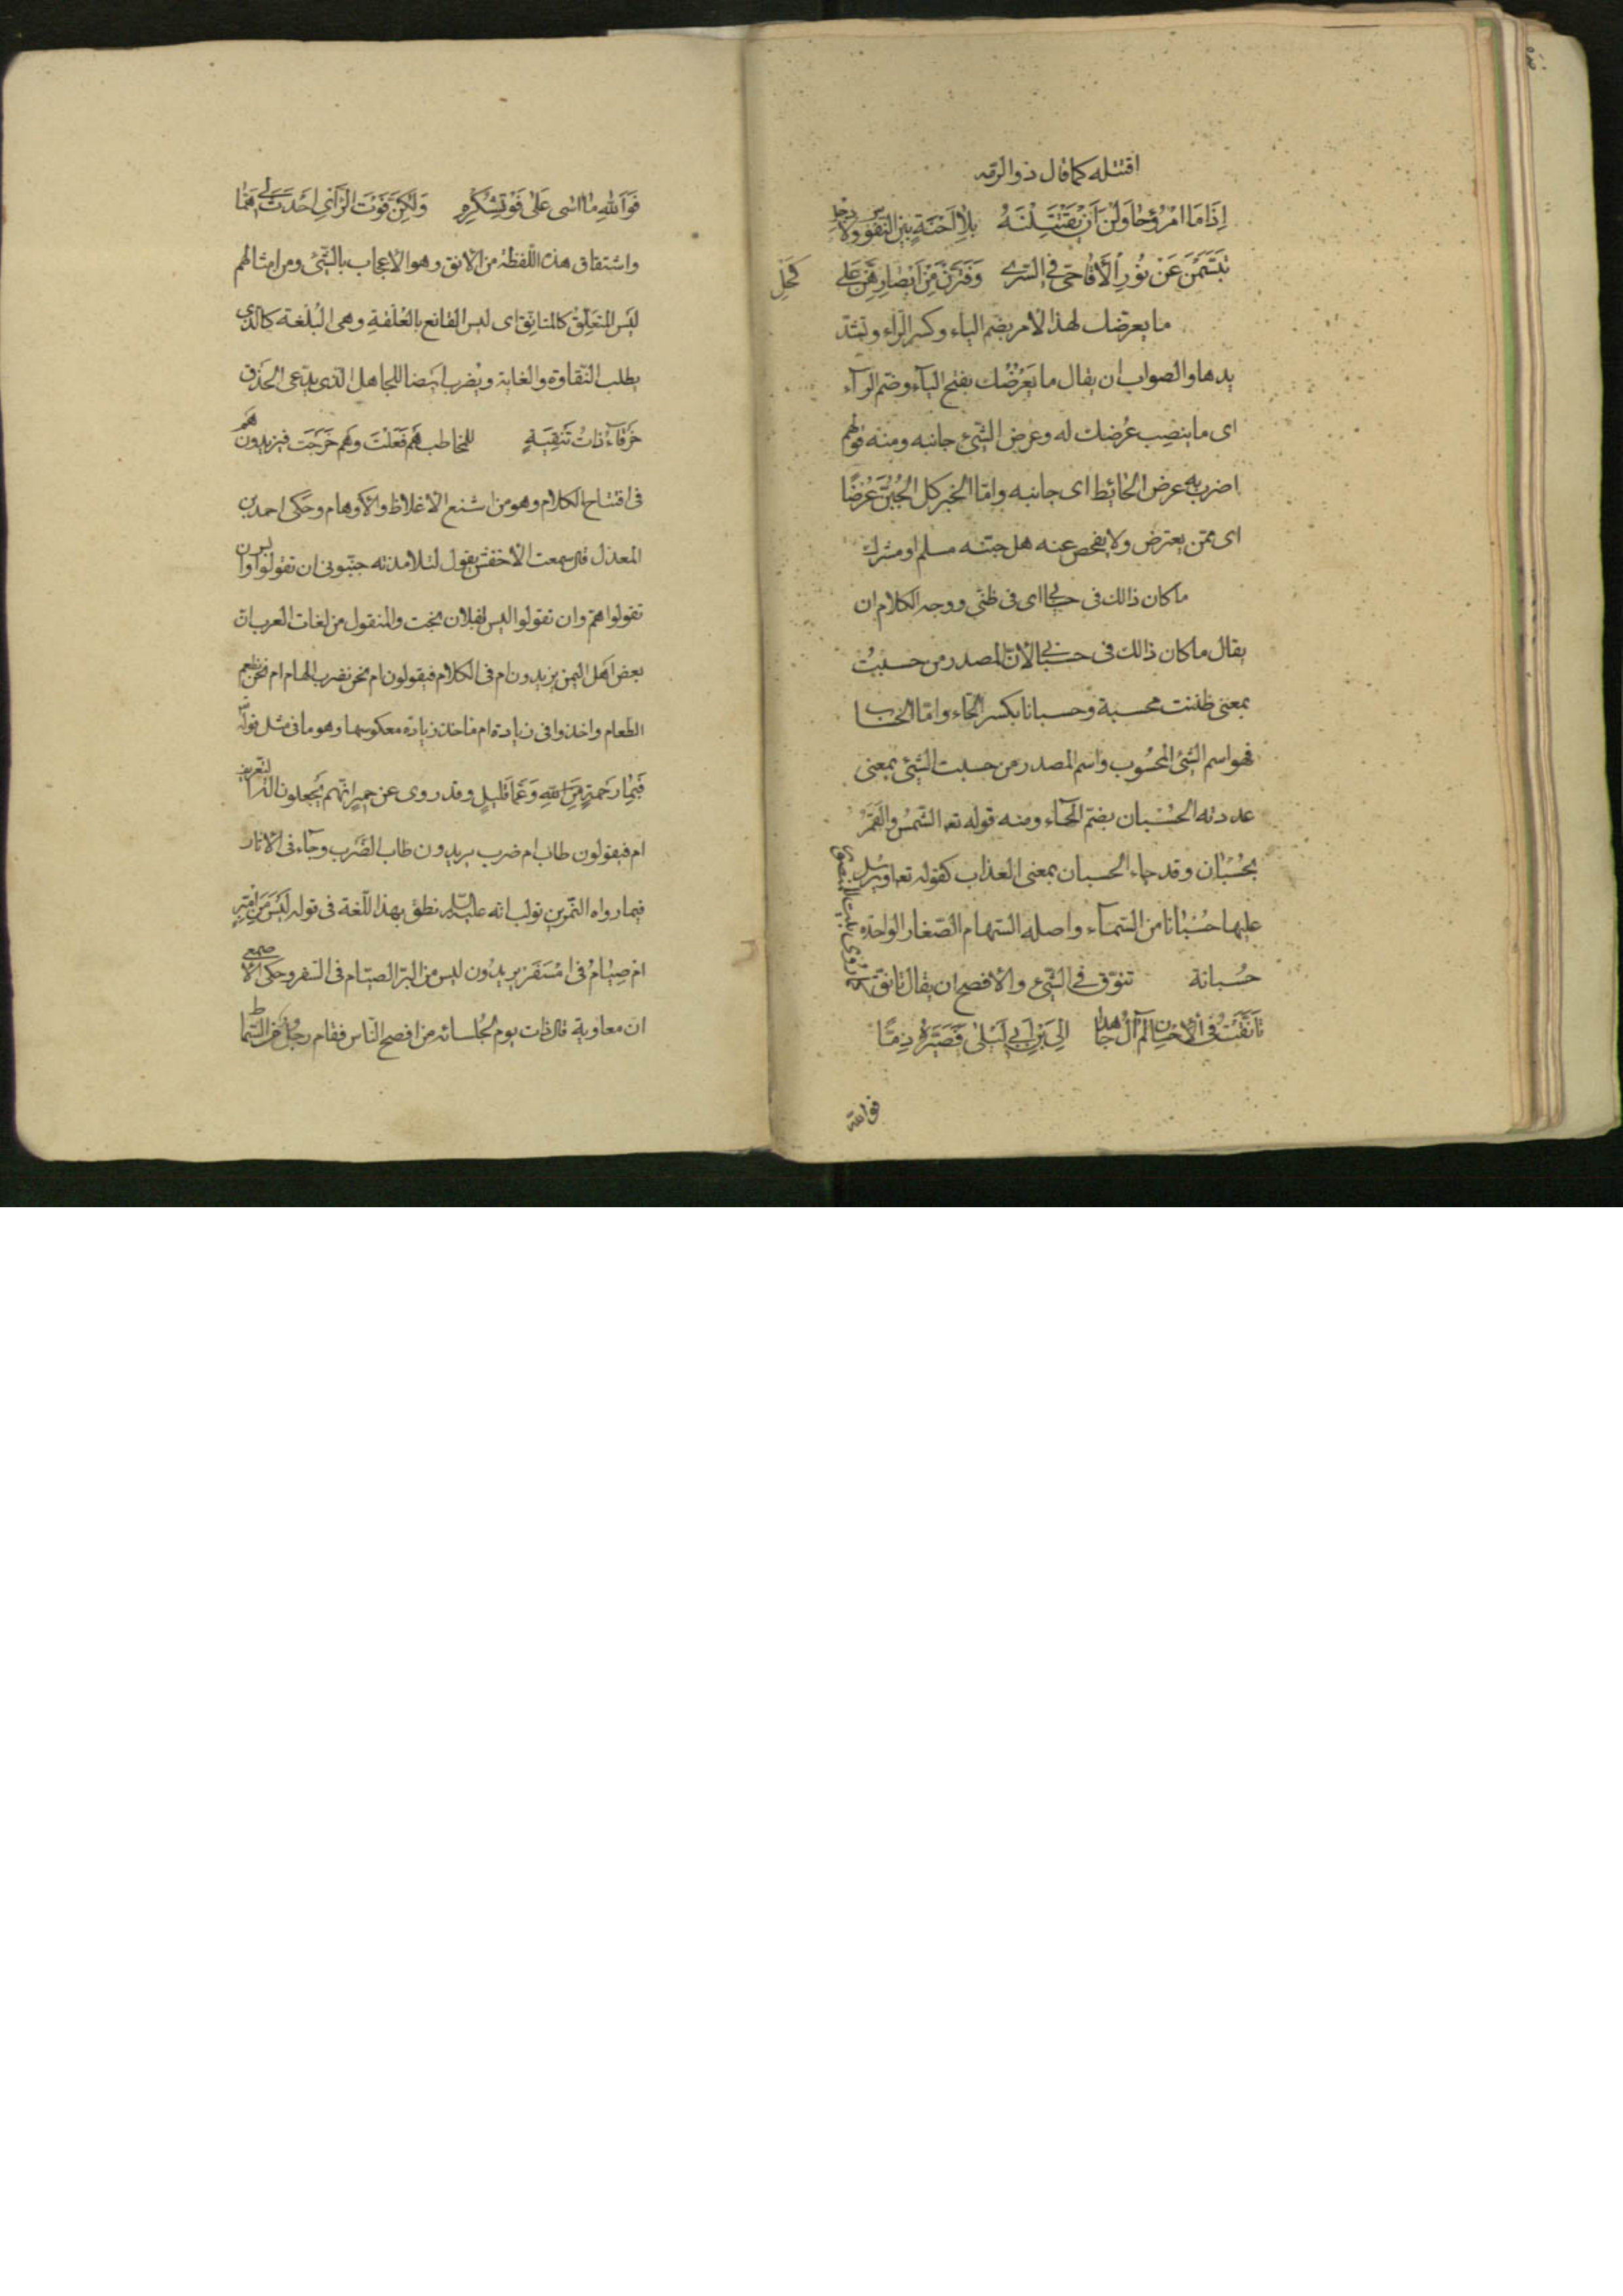 اقتتله كما قال ذو الرمه
اِذَا مَا امْرُؤٌ حَاوَلْنَ اَنْ يَقْتَتِلْنَهُ بِلاٰ اِحْنَةٍ بَيْنَ النُّفُوْسِ وَلاٰ ذَحْلِ
تَبَسَّمْنَ عَنْ نُوْرِ الْاَقَاحِيّ فِي الثَّرىٰ وَفَتَّرْنَ مِنْ اَبْصَارِهِنَّ عَلىٰ كُحْلِ
ما يعرضك لهذا الامر بضم الياء وكسر الراء وتشد
يدها والصواب ان يقال ما يَعْرُضُك بفتح الياء وضم الراء
اى ما ينصِب عُرضك له وعُرض الشىء جانبه ومنه قولهم
اضرب به عرض الحائط اى جانبه وامّا الخبر كل الجُبُنَّ عُرْضًا
اى ممّن يعترض ولا يفحص عنه هل جبنه مسلم او مشرك
ما كان ذالك فى حسابى اى فى ظنّى ووجه الكلام ان
يقال ما كان ذالك فى حسبانى لانّ المصدر من حسبتُ
بمعنى ظننت محسبة وحسبانا بكسر الحاء وامّا الحساب
فهو اسم الشىء المحْسُوب واسم المصدر من حسبت الشىء بمعنى
عددته الحُسْبان بضمّ الحاء ومنه قوله تعه الشّمسُ والقَمَرُ
بحُسْبَان وقد جاء الحسبان بمعنى العذاب كقوله تعه ويرسل
عليها حُسْبَانا من السّماء واصله السّهام الصّغار الواحدة
حُسبانة تنوّق فى الشىء والافصح ان يقال تانّق كما روى
تَاَنَّقْتُ فى الْاِحْسَانِ لَمْ اٰلُ جَاهِدًا اِلَى ابْنِ اَبِي لَيْلىٰ فَصَيَّرَهُ ذِمًّا
فوالله
فَوَاللهِ مَا اٰسىٰ عَلىٰ فَوْتِ شُكْرِهِ وَلٰكِنَّ فَوْتَ الرَّأْيِ اَحْدَثَ لِي هَمَّا
واشتقاق هذه اللّفظة من الانق وهو الاعجاب بالشىء ومن امثالهم
ليس المتعلّق كالمتانّق اى ليس القانع بالعُلْقةِ وهى البُلْغة كالّذى
يطلب النّقاوة والغاية ويضرب ايضا للجاهل الّذى يدّعى الحذق
خَرْقَاءُ ذاتُ تَنِيْقَةٍ للمخاطب هَمْ فَعَلْتَ وهَم خَرَجْت فيزيدون هَم
فى افتتاح الكلام وهو من اشنع الاغلاط والاوهام وحَكى احمد بن
المعذل قال سمعت الاخفش يقول لتلامذته جنّبونى ان تقولوا بس وان
تقولوا همّ وان تقولوا ليس لفلان بخت والمنقول من لغات العرب ان
بعض اهل اليمن يزيدون ام فى الكلام فيقولون ام نحن نضرب الهام ام نحن نطعم
الطّعام واخذوا فى زيادة ام ماخذ زيادة معكوسها وهو ما فى مثل قوله
فَبِمَا رَحْمَةٍ مِنَ اللهِ وَعَمَّا قَلِيْلٍ وقد روى عن حمير انّهم يجعلون الة التّعريف
ام فيقولون طاب ام ضرب يريدون طاب الضّرب وجاء فى الاثار
فيما رواه النّمر بن تولب انّه عليه السلام نطق بهذا اللّغة فى قوله لَيْسَ مِنَ امْبِرِّ
امْ صِيَامُ فى امْ سَفَر يريدون ليس من البرّ الصيّام فى السّفر وحكى الاصمعى
ان معاوية قال ذات يوم لجُلسائه من افصح النّاس فقام رجُل من السّماط